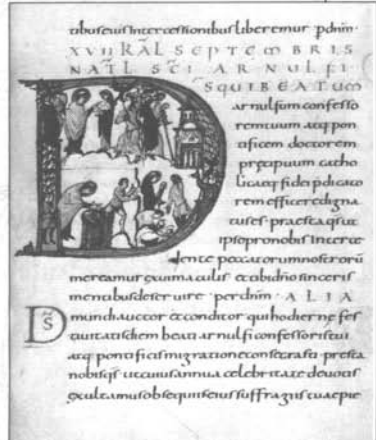 tibus eius intercessionibus liberemur p dnm
XVII KAL SEPTEMBRIS
NATL SCI ARNULFI
DS QUI BEATUM
arnulfum confesso
rem tuum atq pon
tificem doctorem
precipuum catho
licaeq fidei p dicato
rem efficere digna
tus es praesta qs ut
ipso pro nobis interce
dente peccatorum nostrorū
mereamur exui maculis et tibi dño sinceris
mentibus deseruire per dnm ALIA
DS mundi auctor et conditor qui hodiernę fes
tiuitatis diem beati arnulfi confessoris tui
atq pontificis migratione consecrasti presta
nobis qs ut cuius annua celebritate deuotis
exultamus obsequiis eius suffragiis tuae pie